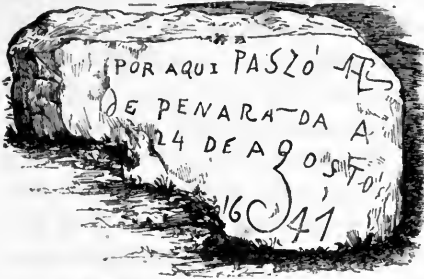 POR AQUI PASZÓ
DE PENARA~DA A
24 DE AGOSTO
1641